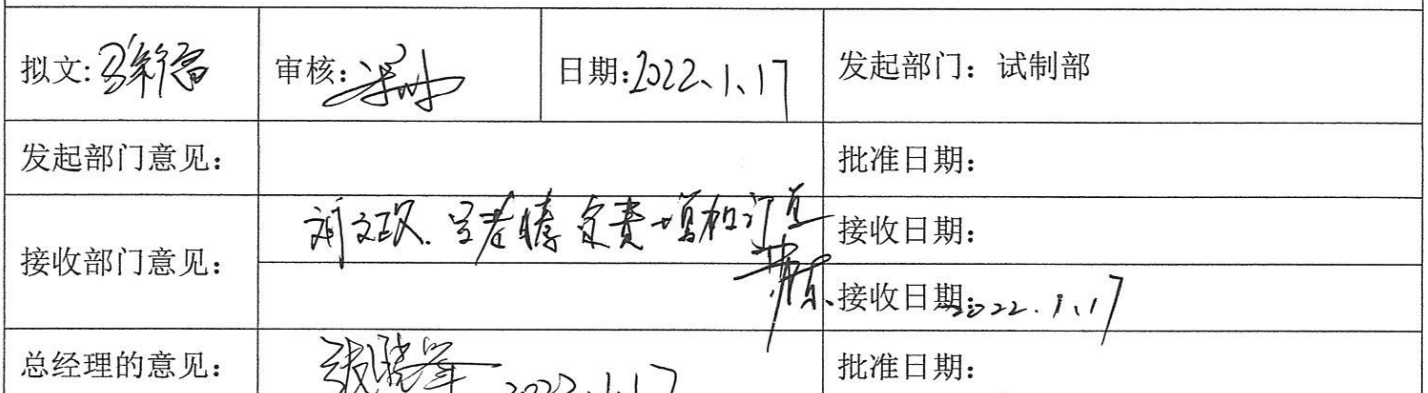 拟文: 审核: 日期:2022、1、17 发起部门：试制部
发起部门意见： 批准日期：
接收部门意见： 刘文政、 负责 接收日期：
接收日期：2022.1.17
总经理的意见： 张晓军 2022.1.17 批准日期：